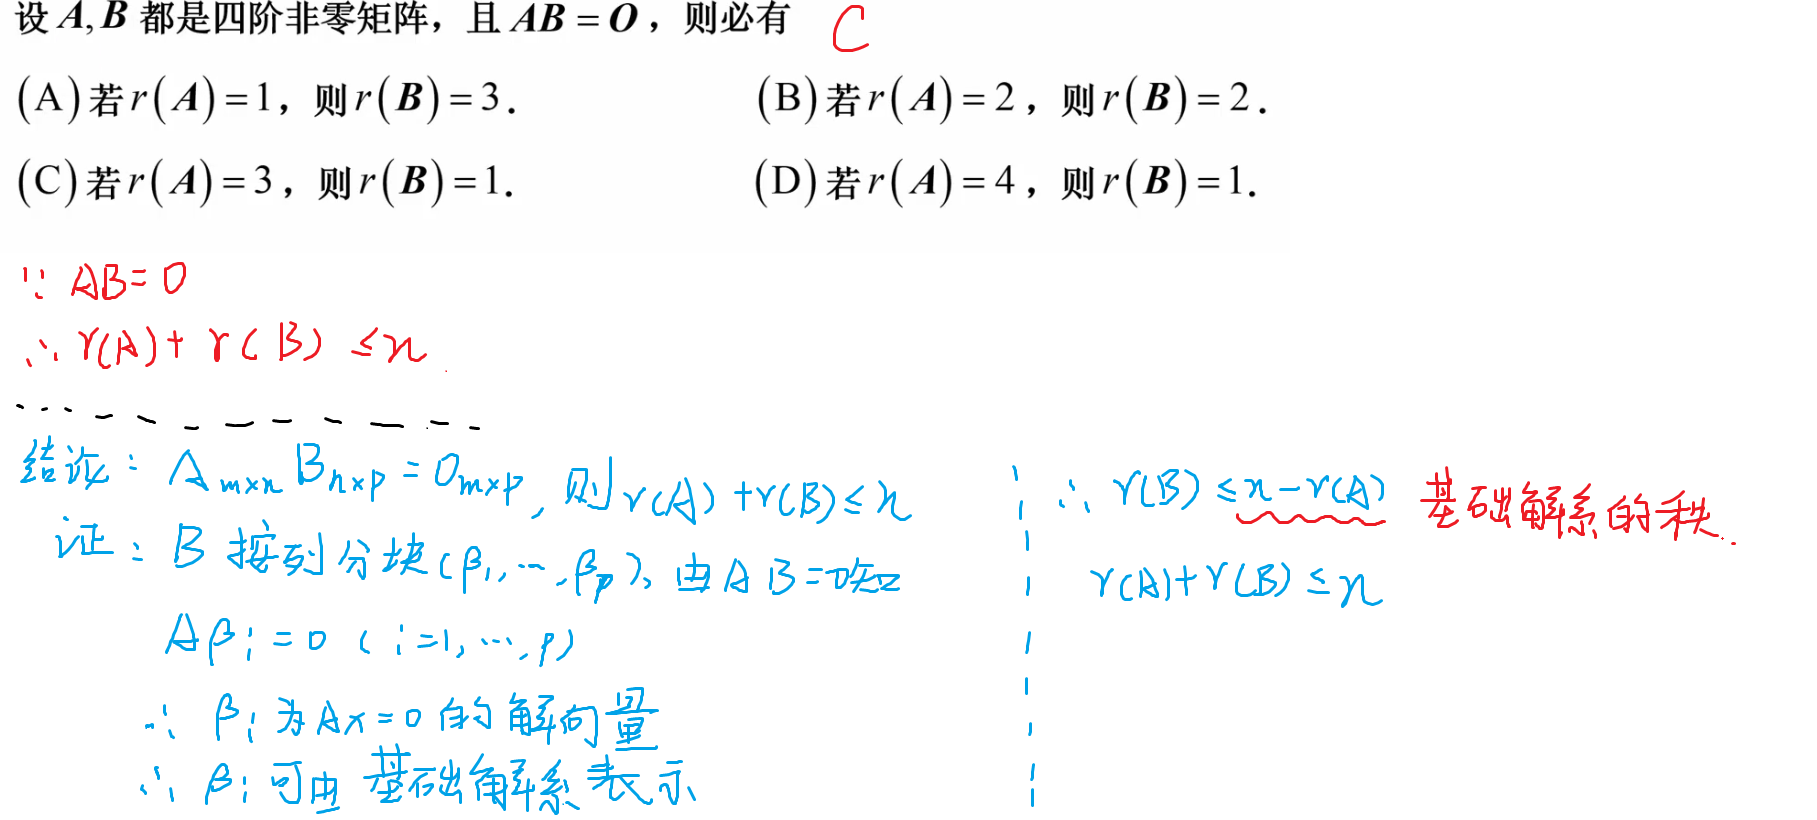 设 A, B 都是四阶非零矩阵，且 AB = O，则必有 C
(A) 若 r(A) = 1，则 r(B) = 3.
(B) 若 r(A) = 2，则 r(B) = 2.
(C) 若 r(A) = 3，则 r(B) = 1.
(D) 若 r(A) = 4，则 r(B) = 1.
∵ AB = 0
∴ r(A) + r(B) ≤ n
结论：A_{m×n} B_{n×p} = O_{m×p}，则 r(A) + r(B) ≤ n
证：B 按列分块(β₁, …, βₚ)，由 AB = 0知
Aβᵢ = 0 (i = 1, …, p)
∴ βᵢ 为 Ax = 0 的解向量
∴ βᵢ 可由 基础解系表示
∴ r(B) ≤ n − r(A) 基础解系的秩.
r(A) + r(B) ≤ n